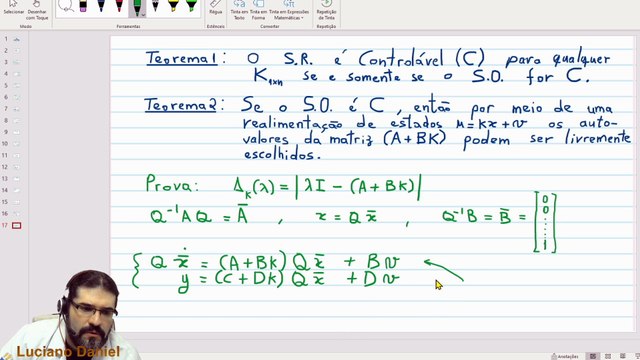 Selecionar
Desenhar com Toque
Borracha
Laço
Tinta em Texto
Tinta em Formas
Tinta em Expressões Matemáticas
Repetição de Tinta
Ferramentas
Converter
Repetição
1
2
3
4
5
6
7
8
9
10
11
12
13
14
15
16
17
Teorema 1: O S.R. é Controlável (C) para qualquer
K₁ₓₙ se e somente se o S.O. for C.
Teorema 2: Se o S.O. é C, então por meio de uma
realimentação de estados u = kx + v os auto-
valores da matriz (A+BK) podem ser livremente
escolhidos.
Prova: Δₖ(λ) = |λI − (A+BK)|
Q⁻¹AQ = Ā , x = Q x̄ , Q⁻¹B = B̄ = [0 0 ⋮ 1]
{ Q ẋ̄ = (A+BK) Q x̄ + B v
y = (C+DK) Q x̄ + D v
Luciano Daniel
Anotações